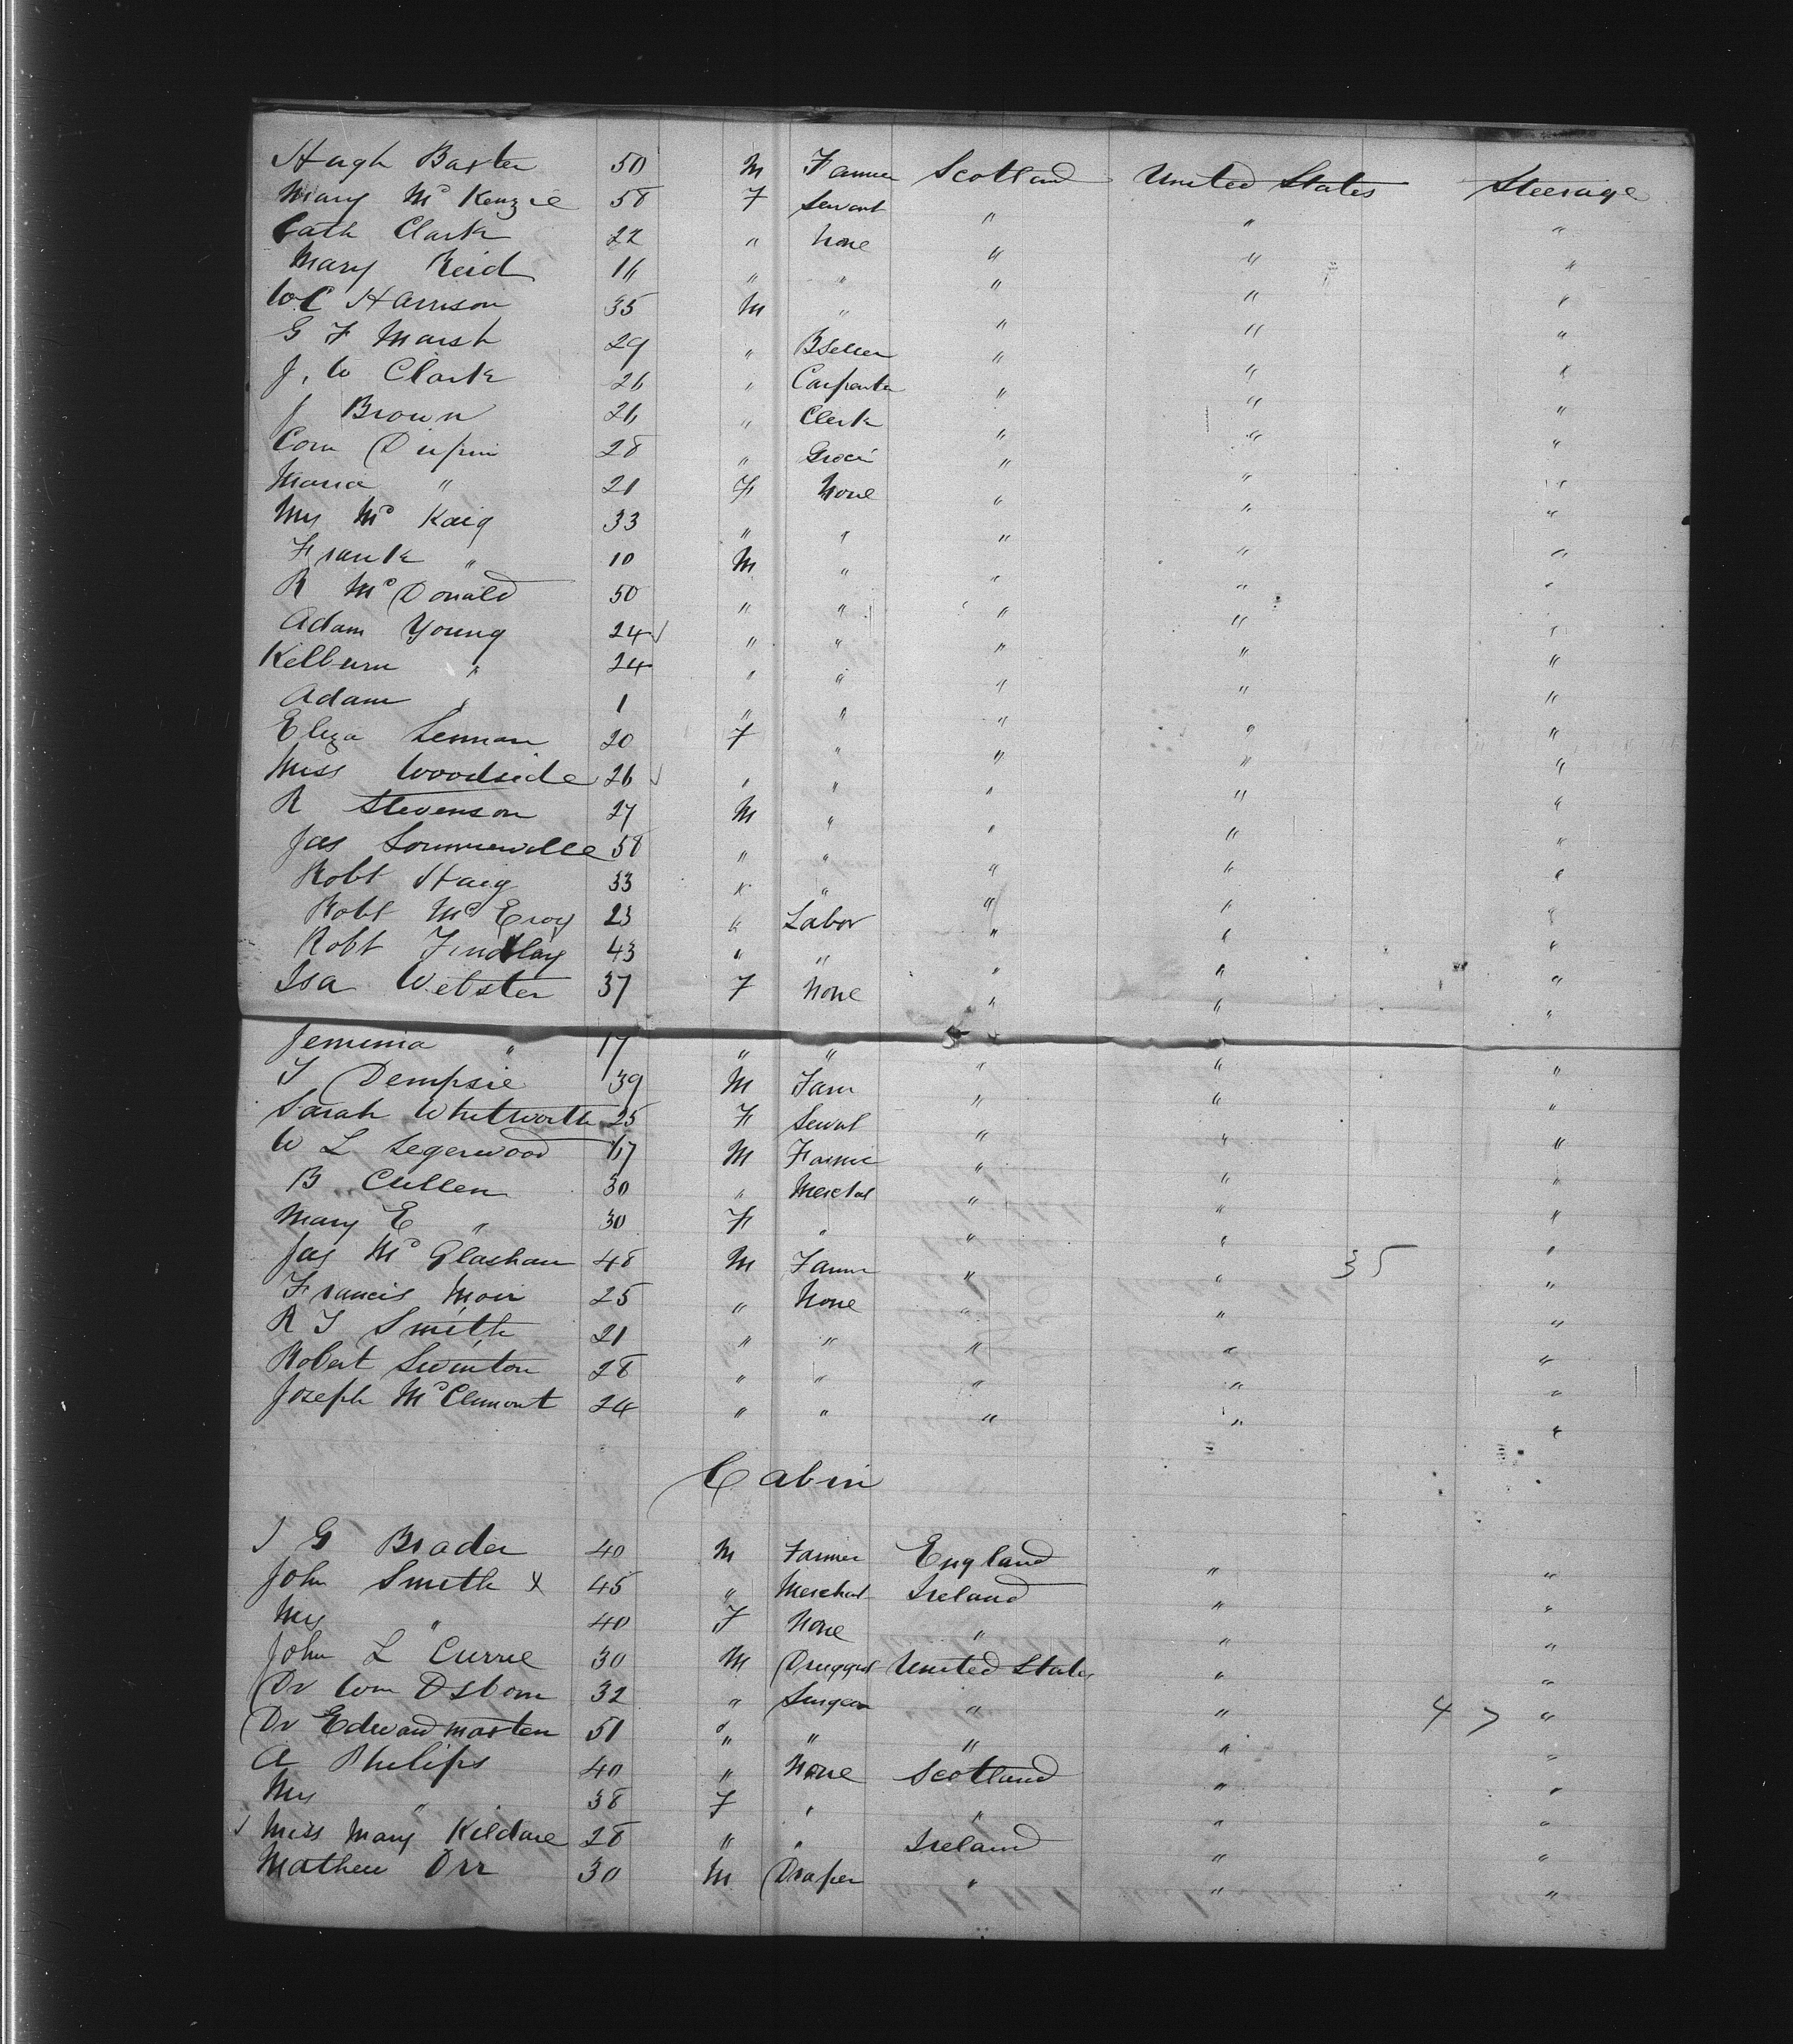 Hugh Baxter 50 M Farmer Scotland United States Steerage
Mary Mc Kenzie 58 F Servant " " "
Cath Clark 22 " None " " "
Mary Reid 16 " " " " "
W C Harrison 35 M " " " "
G F Marsh 29 " BSeller " " "
J. W Clark 26 " Carpenter " " "
J Brown 26 " Clerk " " "
Corn 28 " Grocer " " "
Maria " 21 F None " " "
Mrs Mc Kaig 33 " " " " "
Frank " 10 M " " " "
R McDonald 50 " " " " "
Adam Young 24 " " " " "
Kelburn " 24 " " " " "
Adam " 1 " " " " "
Eliza Lennan 20 F " " " "
Miss Woodside 26 " " " " "
R Stevenson 27 M " " " "
Jas Sommerville 58 " " " " "
Robt Haig 33 " " " " "
Robt Mc Eroy 23 " Labor " " "
Robt Findlay 43 " " " " "
Isa Webster 37 F None " " "
Jemima " 17 " " " " "
T Dempsie 39 M Farm " " "
Sarah Whitworth 25 F Servt " " "
W L Segerwood 17 M Farmer " " "
B Cullen 30 " Merchat " " "
Mary E " 30 F " " " "
Jas Mc Glashan 48 M Farmer " " 35 "
Francis Moir 25 " None " " "
R T Smith 21 " " " " "
Robert Swinton 28 " " " " "
Joseph McClemont 24 " " " " "
Cabin
J G Brader 40 M Farmer England " "
John Smith x 45 " Merchat Ireland " "
Mrs " 40 F None " " "
John L Currie 30 M Druggist United States " "
Dr Wm Osborn 32 " Surgeon " " 47 "
Dr Edward Marten 51 " " " " "
A Philips 40 " None Scotland " "
Mrs " 38 F " " " "
Miss Mary Kildare 28 " " Ireland " "
Mathew Orr 30 M Draper " " "